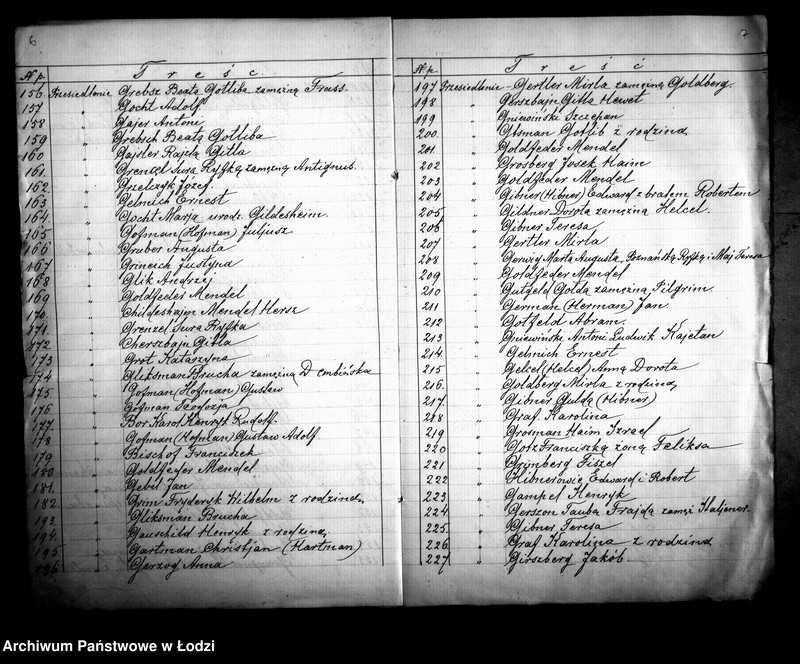 6
N p. Treść.
156 Przesiedlenie Grebsz Beata Gotliba zamężna Frass.
157 " Gocht Adolf
158 " Gajer Antoni
159 " Grebsch Beatą Gotliba
160 " Gajsler Rajcla Gitla
161. " Grenzel Sura Ryfką zamężną Antignus.
162 " Grzelczyk Józef.
163 " Gelmich Ernest
164 " Gocht Marja urodz. Gildesheim.
165 " Gofman (Hofman) Juljusz
166 " Gruber Augusta
167 " Grincich Justyna
168 " Glik Andrzej
169 " Goldfeder Mendel
170. " Childeshajm Mendel Hersz
171. " Grenzel Sura Ryfka
172 " Cherszbajn Gitla
173 " Grot Katarzyna
174 " Gliksman Brucha zamężna Dembińska
175 " Gofman (Hofman) Gustaw
176 " Gofman Teofozja
177. " Bor Karol Henryk Rudolf.
178 " Gofman (Hofman) Gustaw Adolf
179 " Bischof Franciszek
180. " Goldfeder Mendel
181. " Gebel Jan
182. " Grim Fryderyk Wilhelm z rodziną,
193. " Gliksman Brucha
194. " Gauschild Henryk z rodziną,
195 " Gartman Christjan (Hartman)
196 " Gerzog Anna
7
N p. Treść
197 Przesiedlenie Gertler Mirla zamężną Goldberg.
198 " Gerszbajn Gitla Hewet
199 " Gniewiński Szczepan
200. " Gosman Gotlib z rodziną
201. " Goldfeder Mendel
202 " Grosberg Josek Haim
203 " Goldfeder Mendel
204 " Gibner (Hibner) Edward z bratem Robertem
205. " Gildner Dorota zamężną Helcel.
206 " Gibner Teresa
207 " Gertler Mirla
208 " Gerwig Marta Augusta, Poznańską Ryfką i Maj Teresa
209 " Goldfeder Mendel
210 " Gutgeld Golda zamężną Pilgrim.
211 " German (Herman) Jan.
212 " Gotfeld Abram.
213 " Gniewiński Antoni Ludwik Kajetan
214. " Gelmich Ernest
215 " Gelcel (Helcel) Anną Dorota
216. " Goldberg Mirla z rodziną,
217. " Gibner Guldą (Hibner)
218 " Graf Karolina
219 " Grosman Haim Izrael
220 " Gotz Franciszką żoną Feliksa
221 " Grimberg Fiszel
222 " Hibnerowie Edward i Robert
223 " Gampel Henryk
224 " Gerszon Tauba Frajda zamęż. Haljener.
225. " Gibner Teresa
226. " Graf Karolina z rodziną
227 " Girszberg Jakób.
Archiwum Państwowe w Łodzi